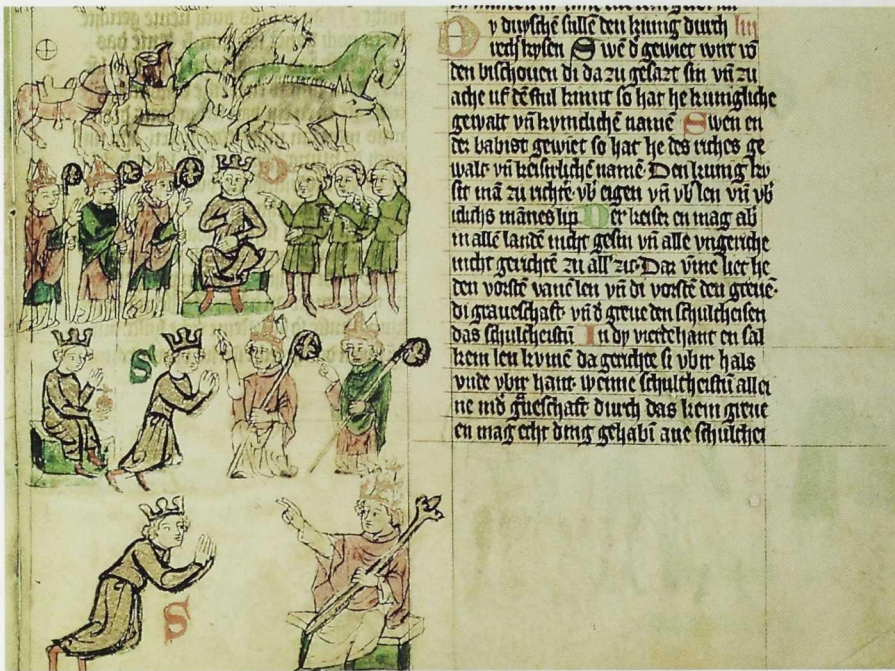 D y duyschē sullē den kunig durch
recht kysen Swen d gewiet wirt vō
den bischouen di da zu gesatzt sin vn̄ zu
ache uf dē stul kumt so hat he kunigliche
gewalt vn̄ kynidichē namē Swen en
der babist gewiet so hat he des riches ge
walt vn̄ keisirlichē namē Den kunig ky
sit mā zu richtē vb eigen vn̄ vb len vn̄ vb
iclichs mānes lip Der keiser en mag ab
in allē landē nicht gesin vn̄ alle vngerichte
nicht gerichtē zu all zit Dar vm̄e liet he
den vorstē vanē len vn̄ di vorstē den greuē
di graueschaft vn̄ d greue den schulcheisen
das schulcheistū In dy vierde hant en sal
kein len kumē da gerichte si vbir hals
vnde vbir hant wenne schultheistū allei
ne in d g̊ueschaft durch das kein greue
en mag echt ding gehabī ane schulchei
D
S
S